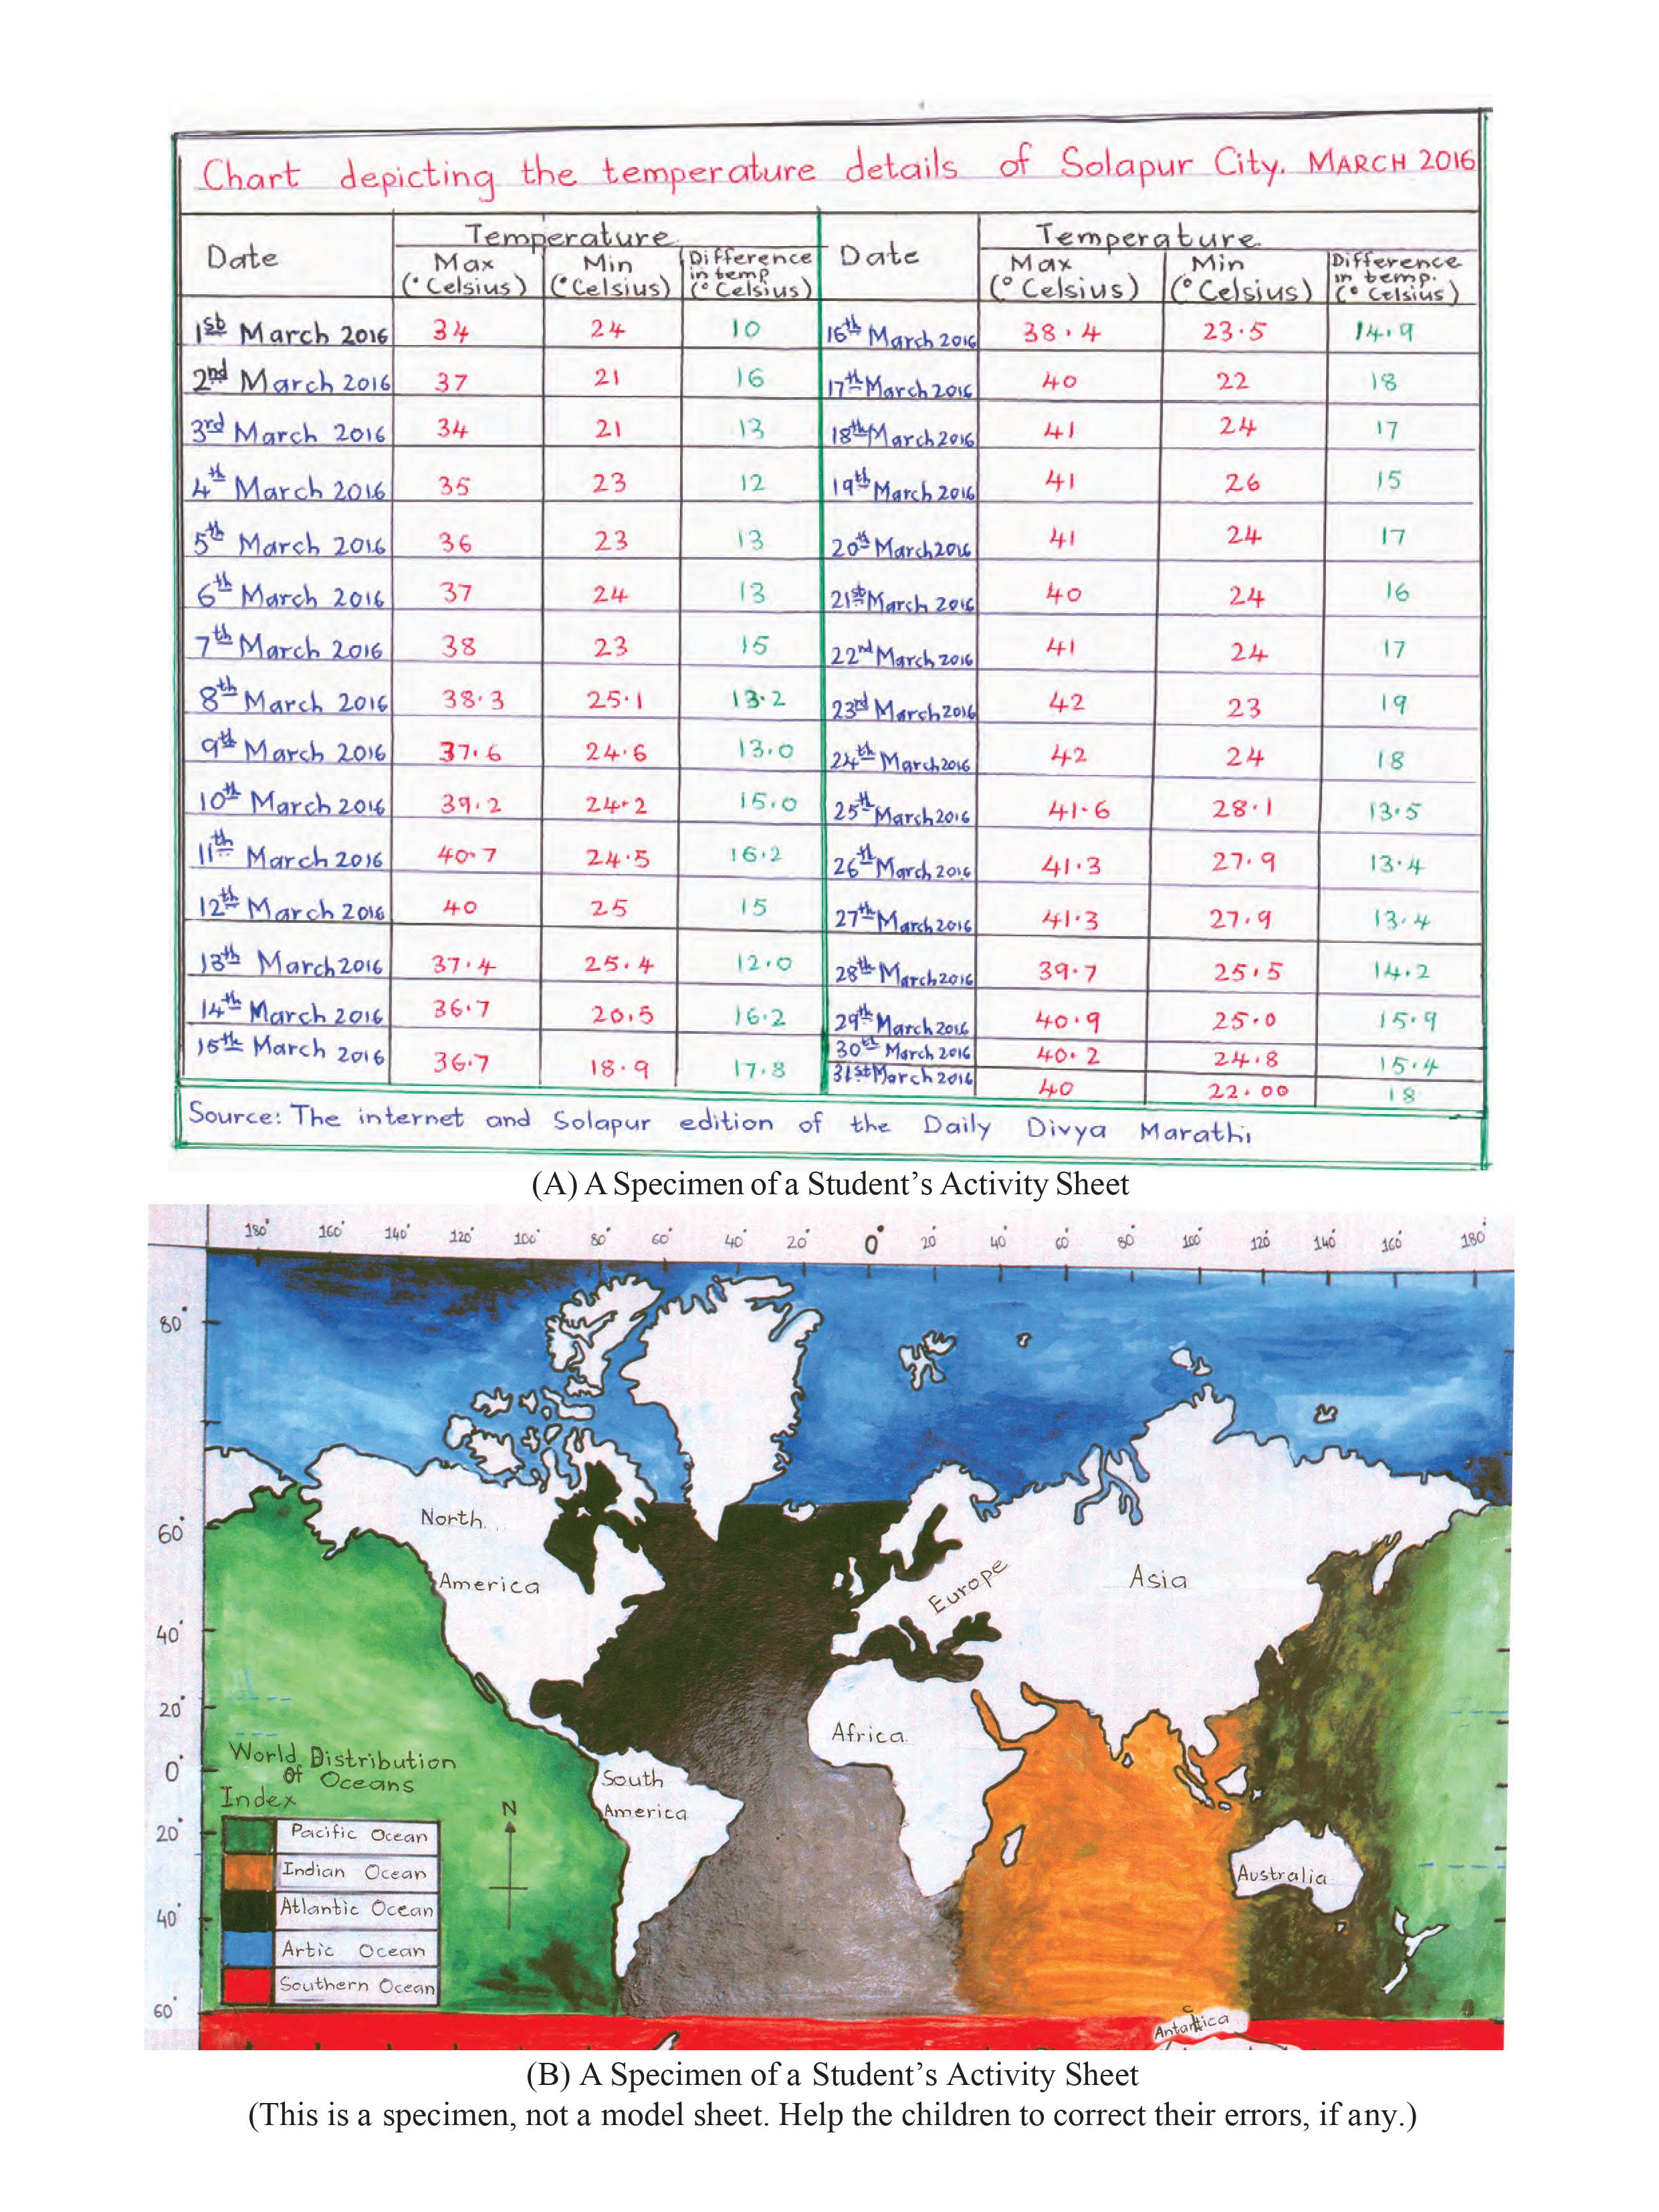 Chart depicting the temperature details of Solapur City. MARCH 2016
Date Temperature Date Temperature
Max (°Celsius) Min (°Celsius) Difference in temp (°Celsius) Max (°Celsius) Min (°Celsius) Difference in temp. (°Celsius)
1st March 2016 34 24 10 16th March 2016 38.4 23.5 14.9
2nd March 2016 37 21 16 17th March 2016 40 22 18
3rd March 2016 34 21 13 18th March 2016 41 24 17
4th March 2016 35 23 12 19th March 2016 41 26 15
5th March 2016 36 23 13 20th March 2016 41 24 17
6th March 2016 37 24 13 21st March 2016 40 24 16
7th March 2016 38 23 15 22nd March 2016 41 24 17
8th March 2016 38.3 25.1 13.2 23rd March 2016 42 23 19
9th March 2016 37.6 24.6 13.0 24th March 2016 42 24 18
10th March 2016 39.2 24.2 15.0 25th March 2016 41.6 28.1 13.5
11th March 2016 40.7 24.5 16.2 26th March 2016 41.3 27.9 13.4
12th March 2016 40 25 15 27th March 2016 41.3 27.9 13.4
13th March 2016 37.4 25.4 12.0 28th March 2016 39.7 25.5 14.2
14th March 2016 36.7 20.5 16.2 29th March 2016 40.9 25.0 15.9
15th March 2016 36.7 18.9 17.8 30th March 2016 40.2 24.8 15.4
31st March 2016 40 22.00 18
Source: The internet and Solapur edition of the Daily Divya Marathi
(A) A Specimen of a Student’s Activity Sheet
180° 160° 140° 120° 100° 80° 60° 40° 20° 0° 20° 40° 60° 80° 100° 120° 140° 160° 180°
80°
60°
40°
20°
0°
20°
40°
60°
North
America
Europe
Asia
Africa
South
America
Australia
Antarctica
World Distribution
Of Oceans
Index
N
Pacific Ocean
Indian Ocean
Atlantic Ocean
Artic Ocean
Southern Ocean
(B) A Specimen of a Student’s Activity Sheet
(This is a specimen, not a model sheet. Help the children to correct their errors, if any.)